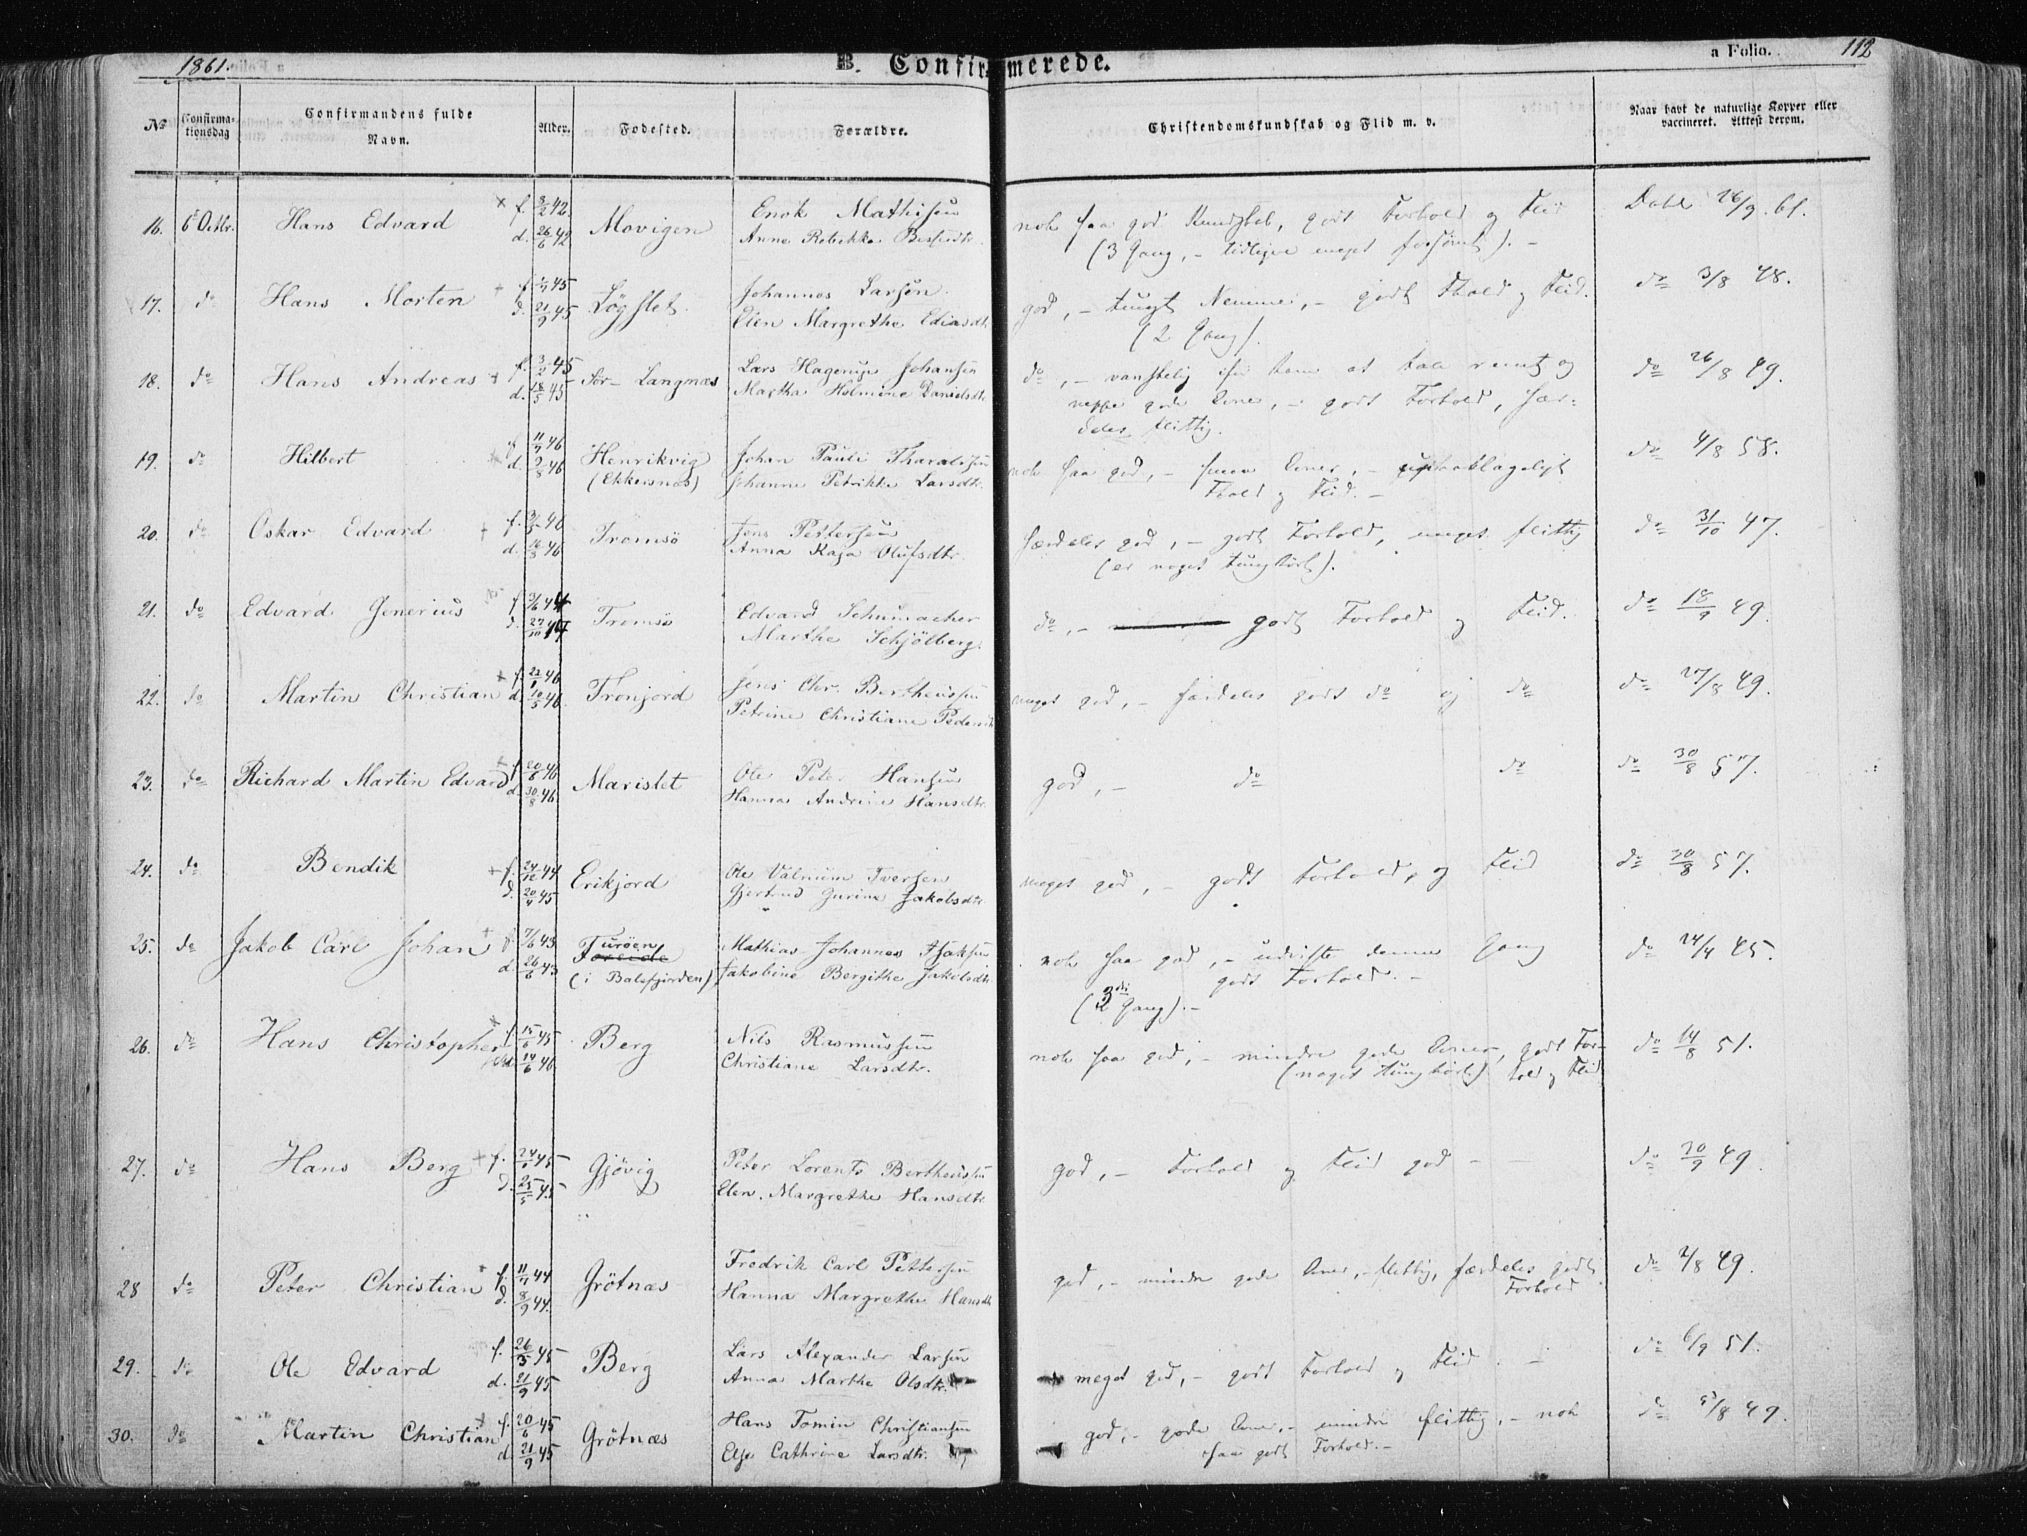 1861.
B. Confirmerede.
a Folio. 112
No
Confirmationsdag
Confirmandens fulde Navn.
Alder.
Fødested.
Forældre.
Christendomskundskab og Flid m. v.
Naar havt de naturlige Kopper eller vaccineret. Attest derom.
16. 6 Octbr. Hans Edvard f. 3/2 42 Movigen Enok Mathisen nok saa god Kundskab, godt Forhold og Flid Dahl 26/9 61.
d. 26/6 42 Anne Rebekka (3 Gang, - tidligere meget forsømt). -
17. do Hans Morten f. 45 Løgslet Johannes Larsen god, - tungt Nemme, - godt Fhold og Flid. do 3/8 48.
d. 21/9 45 Elen Margrethe Ediasdtr (2 Gang).
18. do Hans Andreas f. 3/2 45 Sør-Langnæs Lars Hagerup Johansen do, - vanskelig at tale rent og do 26/8 49.
d. 18/5 45 Martha Holmine Danielsdtr neppe gode Evner, - godt Forhold, sær-
deles flittig.
19. do Hilbert f. 11/7 46 Henrikvig Johan Pauli Tharaldsen nok saa god, - smaa Evner, - upaaklageligt do 4/8 58.
d. 2/8 46 (Ekkersnæs) Johanna Petrikke Larsdtr. Fhold og Flid. -
20. do Oskar Edvard f. 46 Tromsö Jens Pettersen særdeles god, - godt Forhold, meget flittig do 31/10 47.
d. 46 Anna Kaja Olufsdtr. (er noget tunghört).
21. do Edvard Jenerius f. 44 Tromsö Edvard Schumacher do, - godt Forhold og Flid. do 18/9 49.
d. 27/10 44 Marthe Schjölberg.
22. do Martin Christian f. 22/1 46 Tronjord Jens Chr. Bertheussen meget god, - særdeles godt do og do do 27/8 49.
d. 10/5 46. Petrine Christiane Pedersdtr
23. do Richard Martin Edvard f. 20/6 46 Marislet Ole Peter Hansen god, - do do do 30/8 57.
d. 30/8 46. Hanna Andrine Hansdtr.
24. do Bendik f. 24/12 44 Erikjord Ole Iversen meget god, - godt Forhold, og Flid do 30/8 57.
d. 20/4 45 Gjertrud Gurine Jakobsdtr
25. do Jakob Carl Johan f. 7/6 43 Turöen Mathias Johannes Isaksen nok saa god, - udviste denne Gang do 24/4 45.
d. 26/6 43 (i Balsfjorden) Jakobine Bergithe Jakobsdtr godt Forhold. -
(3die Gang). -
26. do Hans Christopher f. 15/6 45 Berg Nils Rasmussen nok saa god, - mindre gode Evner, godt For- do 14/8 51.
d. 14/6 46. Christiane Larsdtr. (noget tunghört) hold og Flid
27. do Hans Berg f. 24/1 45 Gjövig Peter Lorents Bertheussen god, - Forhold og Flid god - - do 20/9 49.
d. 25/5 45 Elen Margrethe Hansdtr
28 do Peter Christian f. 11/7 44 Grötnæs Fredrik Carl Pettersen god, - mindre gode Evner, - flittig, særdeles godt do 2/8 49.
d. 8/9 44. Hanna Margrethe Hansdtr Forhold
29. do Ole Edvard f. 26/5 45 Berg Lars Alexander Larsen meget god, - godt Forhold og Flid. - do 6/9 51.
d. 21/9 45 Anna Marthe Olsdtr.
30. do Martin Christian f. 20/6 45 Grötnæs Hans Tomin Christiansen god, - gode Evner, - mindre flittig, - nok do 5/8 49.
d. 21/9 45 Else Cathrine Larsdtr. saa godt Forhold. -